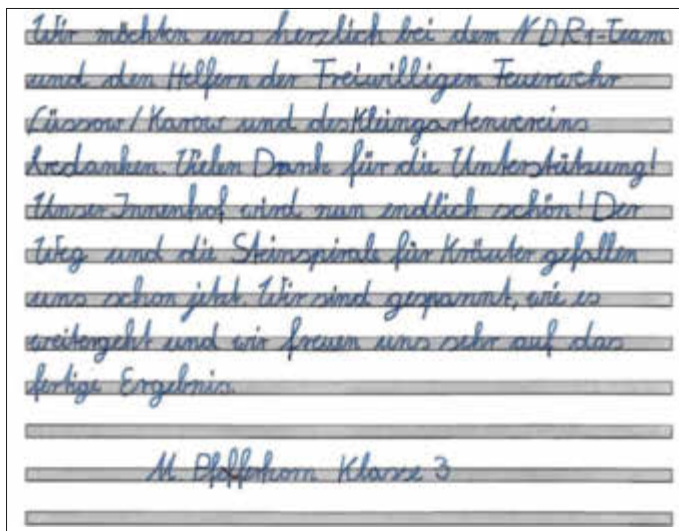 Wir möchten uns herzlich bei dem NDR1-Team
und den Helfern der Freiwilligen Feuerwehr
Lüssow/Karow und des Kleingartenvereins
bedanken. Vielen Dank für die Unterstützung!
Unser Innenhof wird nun endlich schön! Der
Weg und die Steinspirale für Kräuter gefallen
uns schon jetzt. Wir sind gespannt, wie es
weitergeht und wir freuen uns sehr auf das
fertige Ergebnis.
M. Pfefferkorn Klasse 3